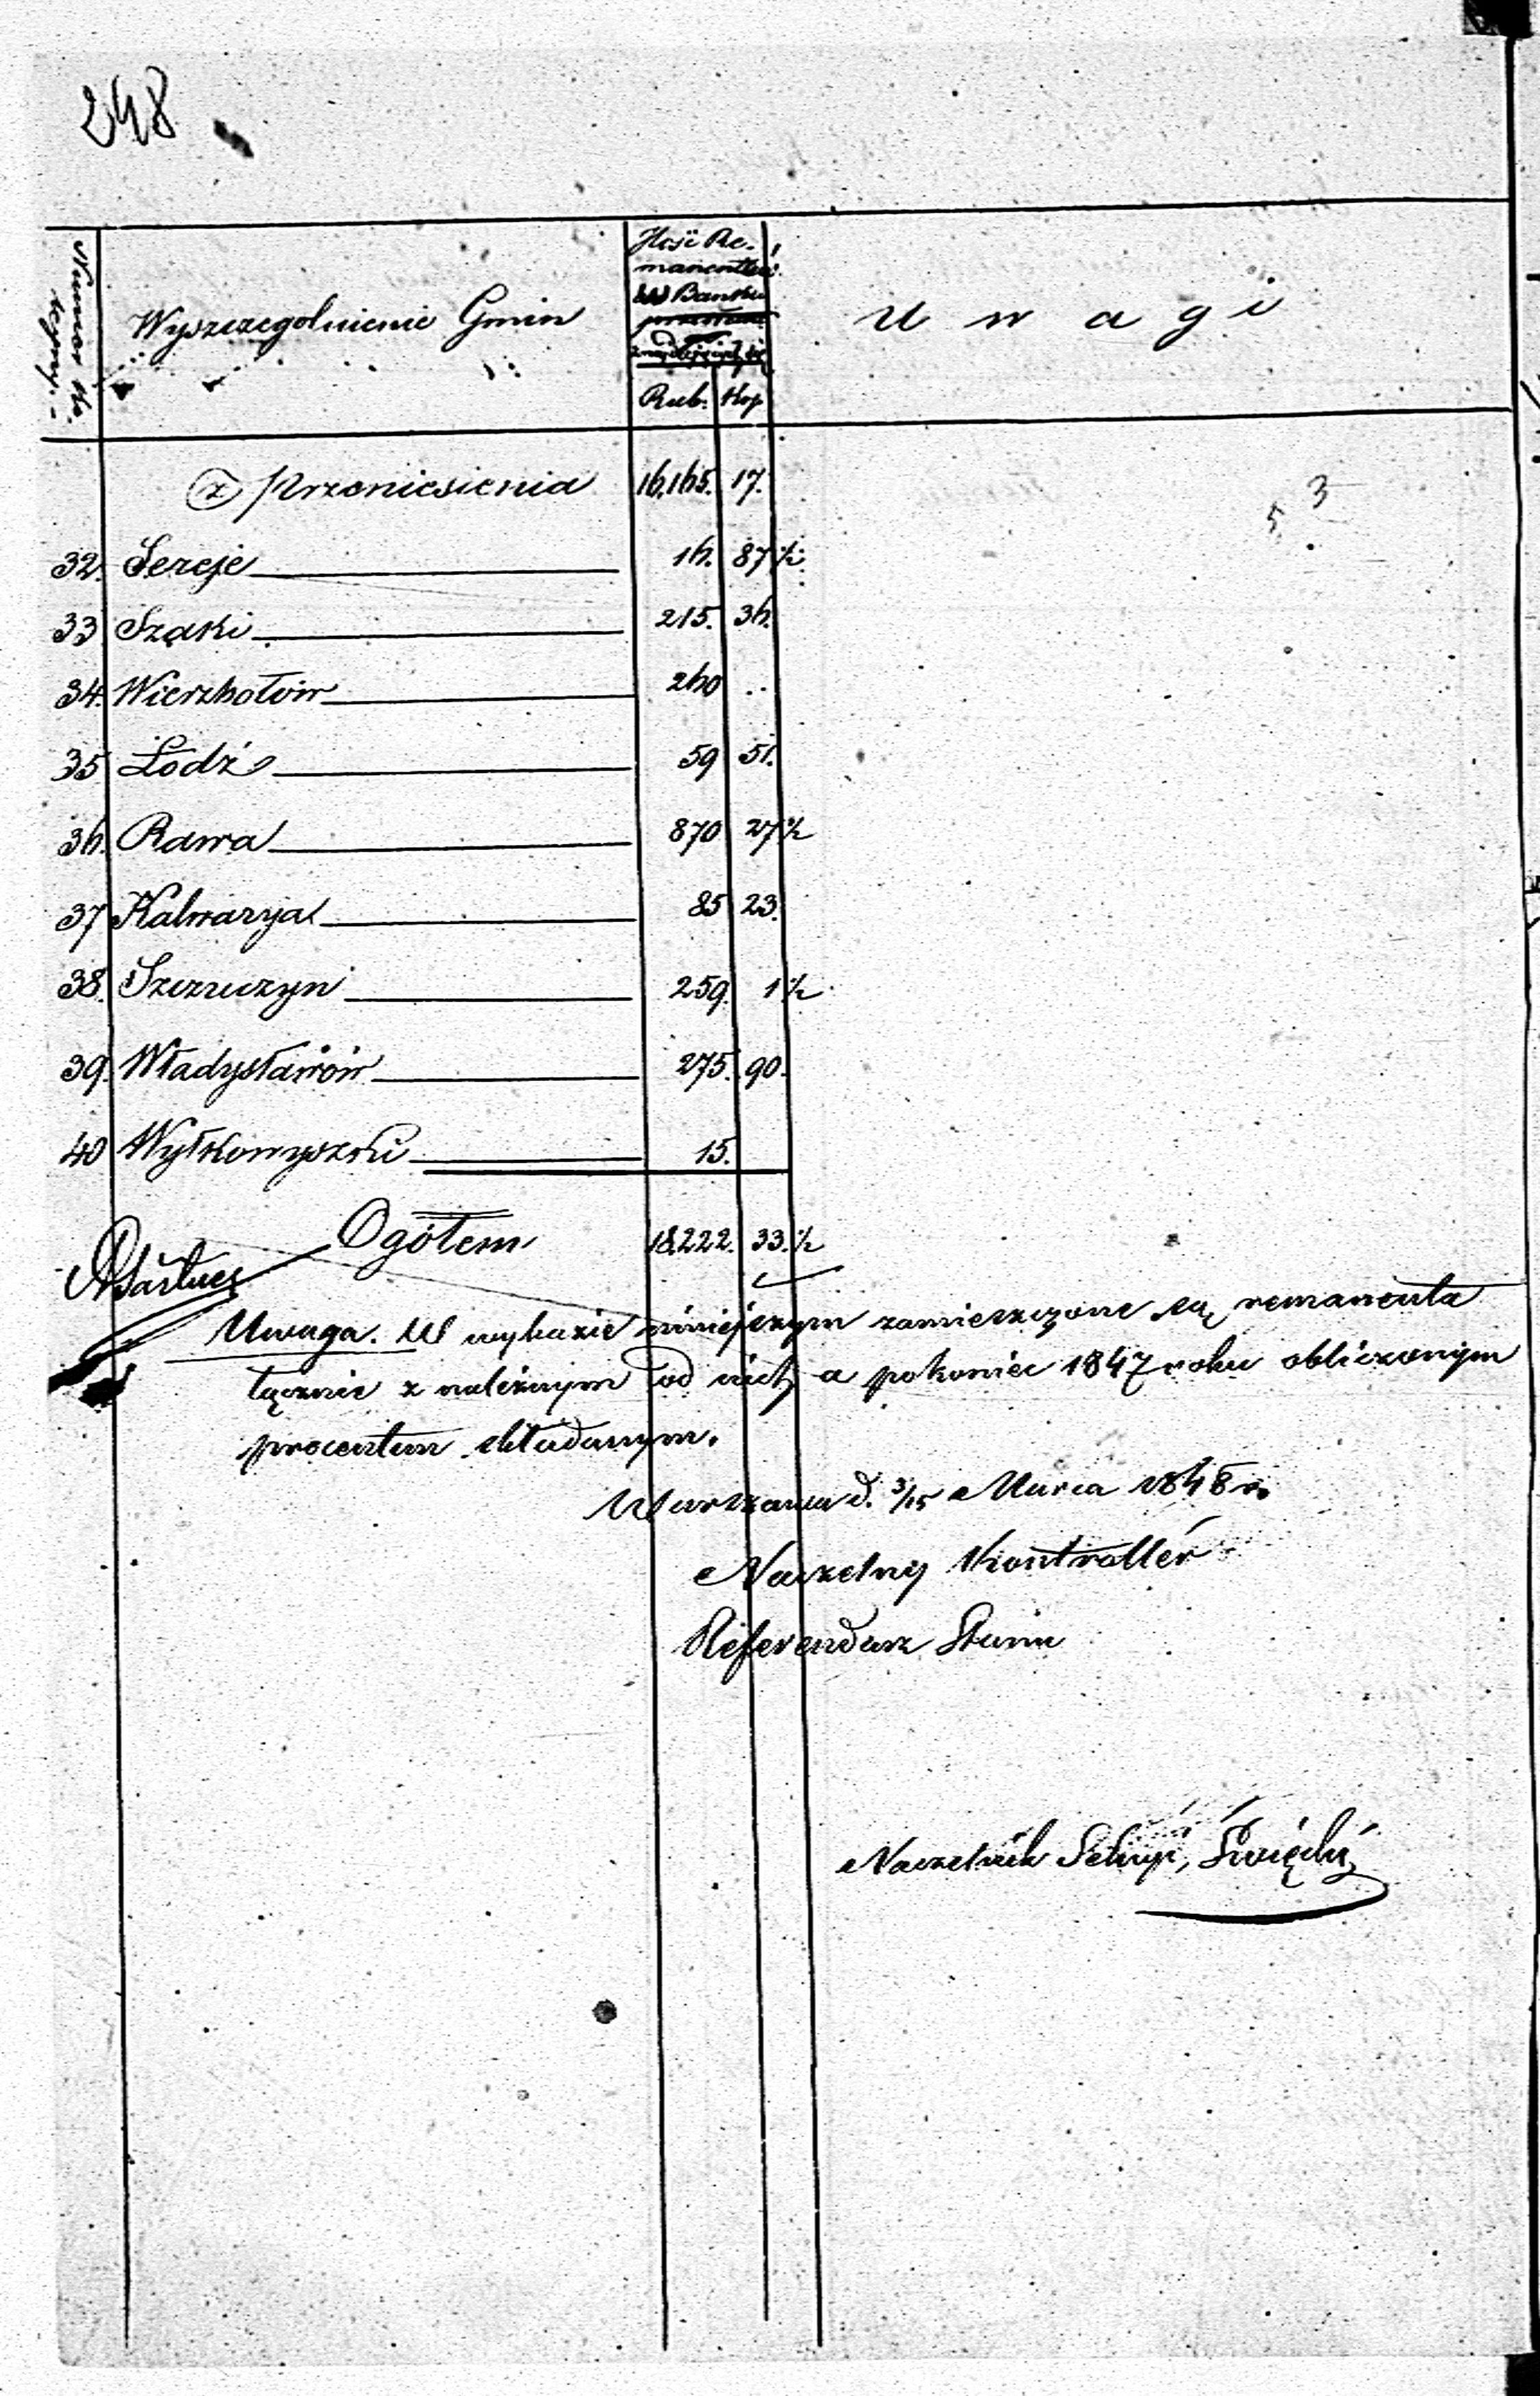 248
Numer ko-
lejny. -
Wyszczegolnienie Gmin
Ilość Re-
manentów
w Banku
znajdujących się
Rub. Kop
U w a g i
z Przeniesienia 16,165. 17.
5 3
32. Sereje 16. 87 ½
33 Szaki 215. 36.
34. Wierzbołów 260 ..
35 Łódź 59 51.
36. Rawa 870 27 ½
37 Kalwarya 85 23.
38. Szczuczyn 259. 1 ½
39. Władysławów 275. 90.
40 Wyłkowyszki 15.
Ogółem 18222. 33. ½
Uwaga. W wykazie niniejszym zamieszczone są remanenta
łącznie z należnym od nich a pokoniec 1847 roku obliczonym
procentem składanym.
Warszawa d. 3/15 Marca 1848 r.
Naczelny Kontroller
Referendarz Stanu
Naczelnik Sekcyi, Święcki